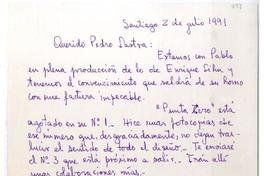 Santiago 2 de julio 1991
Querido Pedro Lastra:
Estamos con Pablo
en plena producción de lo de Enrique Lihn y
tenemos el convencimiento que saldrá de su horno
con una factura impecable.
"Punto Cero" está
agotado en su Nº 1. Hice unas fotocopias de
ese número que, desgraciadamente, no logra tradu-
cir el sentido de todo el diseño. Te enviaré
el Nº 3 que está próximo a salir. Irán allí
unas colaboraciones mías.